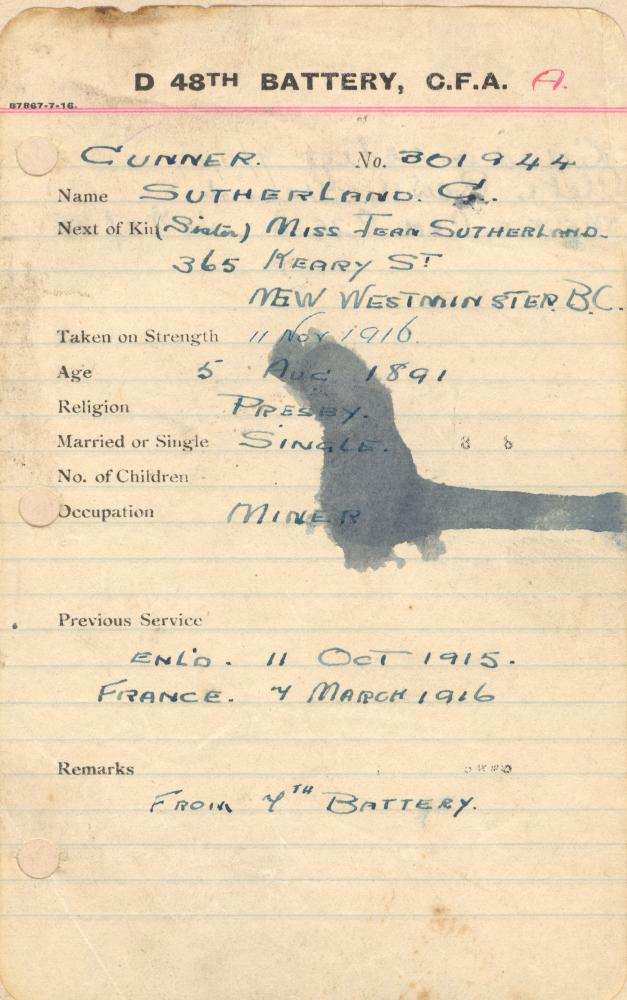 D 48TH BATTERY, C.F.A. A.
87867-7-16.
GUNNER. No. 301944
Name SUTHERLAND. G.
Next of Kin (Sister) MISS JEAN SUTHERLAND.
365 KEARY ST
NEW WESTMINSTER. B.C.
Taken on Strength 11 Nov 1916.
Age 5 AUG 1891
Religion PRESBY.
Married or Single SINGLE.
No. of Children
Occupation MINER
Previous Service
ENL'D. 11 OCT 1915.
FRANCE. 7 MARCH 1916
Remarks
FROM 7TH BATTERY.